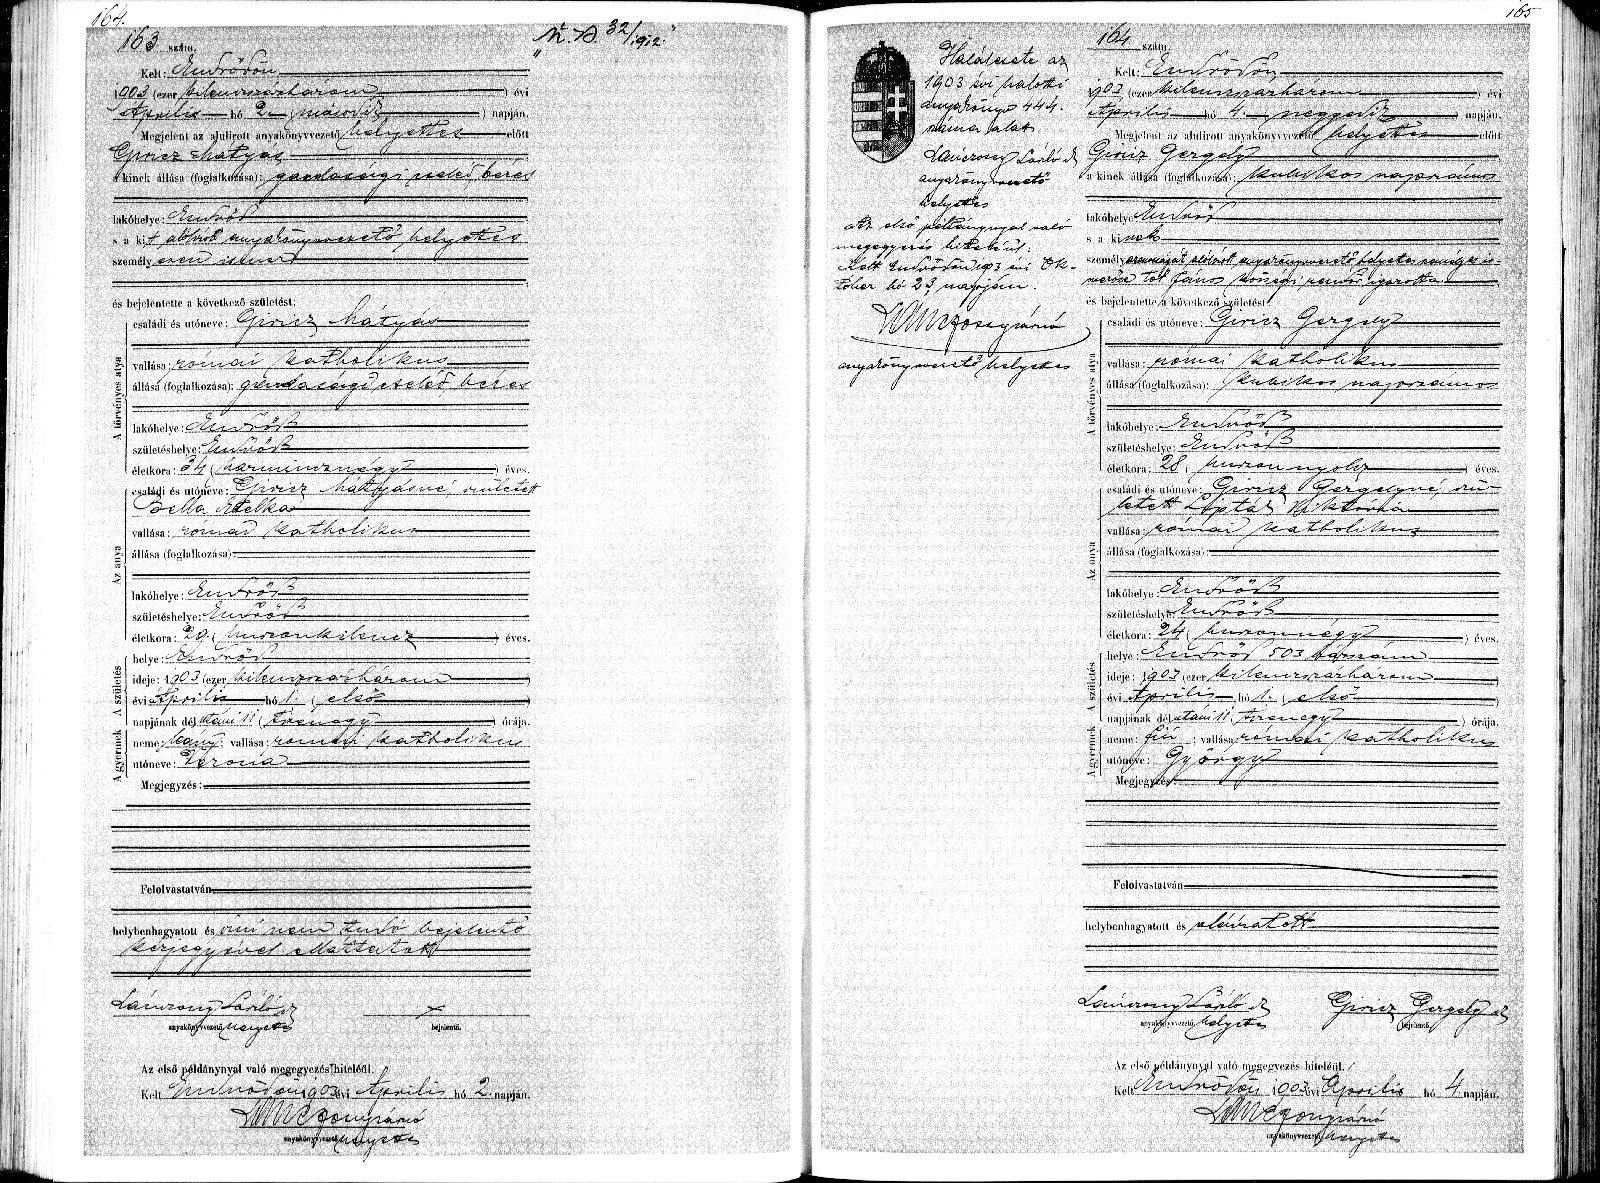 164.
163 szám.
"N. A. 32/1912"
Kelt: Endrődön
1903 (ezer kilenczszázhárom) évi
Április hó 2. (második) napján.
Megjelent az alulirott anyakönyvvezető helyettes előtt
Giricz Mátyás
a kinek állása (foglalkozása): gazdasági cseléd, béres
lakóhelye: Endrőd
s a kit alólirott anyakönyvvezető helyettes
személyesen ismer
és bejelentette a következő születést:
A törvényes atya
családi és utóneve: Giricz Mátyás
vallása: római katholikus
állása (foglalkozása): gazdasági cseléd, béres
lakóhelye: Endrőd
születéshelye: Endrőd
életkora: 34 (harmincznégy) éves.
Az anya
családi és utóneve: Giricz Mátyásné, született
Bella Etelka
vallása: római katholikus
állása (foglalkozása):
lakóhelye: Endrőd
születéshelye: Endrőd
életkora: 29. (huszonkilencz) éves.
A születés
helye: Endrőd
ideje: 1903 (ezer kilenczszázhárom)
évi Április hó 1. (első)
napjának dél utáni 11 (tizenegy) órája.
A gyermek
neme: leány; vallása: római katholikus
utóneve: Verona
Megjegyzés:
Felolvastatván
helybenhagyatott és írni nem tudó bejelentő
kézjegyével elláttatott
Lánczony László h
anyakönyvvezető helyettes
x
bejelentő.
Az első példánynyal való megegyezés hiteléül.
Kelt Endrődön 1903 évi Április hó 2. napján.
anyakönyvvezető helyettes
165
Halálesete az
1903 évi halotti
anyakönyv 444.
száma alatt
Lánczony László h
anyakönyvvezető
helyettes
Az első példánynyal való
megegyezés hiteléül.
Kelt Endrődön 1903 évi Ok-
tóber hó 23 napján.
anyakönyvvezető helyettes
164 szám.
Kelt: Endrődön
1903 (ezer kilenczszázhárom) évi
Április hó 4. (negyedik) napján.
Megjelent az alulirott anyakönyvvezető helyettes előtt
Giricz Gergely
a kinek állása (foglalkozása): kubikos napszámos
lakóhelye: Endrőd
s a kinek
személyazonosságát alólirott anyakönyvvezető helyettes is-
merőse Tót János községi rendőr igazolta
és bejelentette a következő születést:
A törvényes atya
családi és utóneve: Giricz Gergely
vallása: római katholikus
állása (foglalkozása): kubikos napszámos
lakóhelye: Endrőd
születéshelye: Endrőd
életkora: 28 (huszonnyolcz) éves.
Az anya
családi és utóneve: Giricz Gergelyné, szü-
letett Lipták Viktória
vallása: római katholikus
állása (foglalkozása):
lakóhelye: Endrőd
születéshelye: Endrőd
életkora: 24 (huszonnégy) éves.
A születés
helye: Endrőd 503 házszám
ideje: 1903 (ezer kilenczszázhárom)
évi Április hó 1. (első)
napjának dél utáni 11. (tizenegy) órája.
A gyermek
neme: fiú; vallása: római katholikus
utóneve: György
Megjegyzés:
Felolvastatván
helybenhagyatott és aláiratott
Lánczony László h
anyakönyvvezető helyettes
Giricz Gergely
bejelentő.
Az első példánynyal való megegyezés hiteléül.
Kelt Endrődön 1903 évi Április hó 4 napján.
anyakönyvvezető helyettes